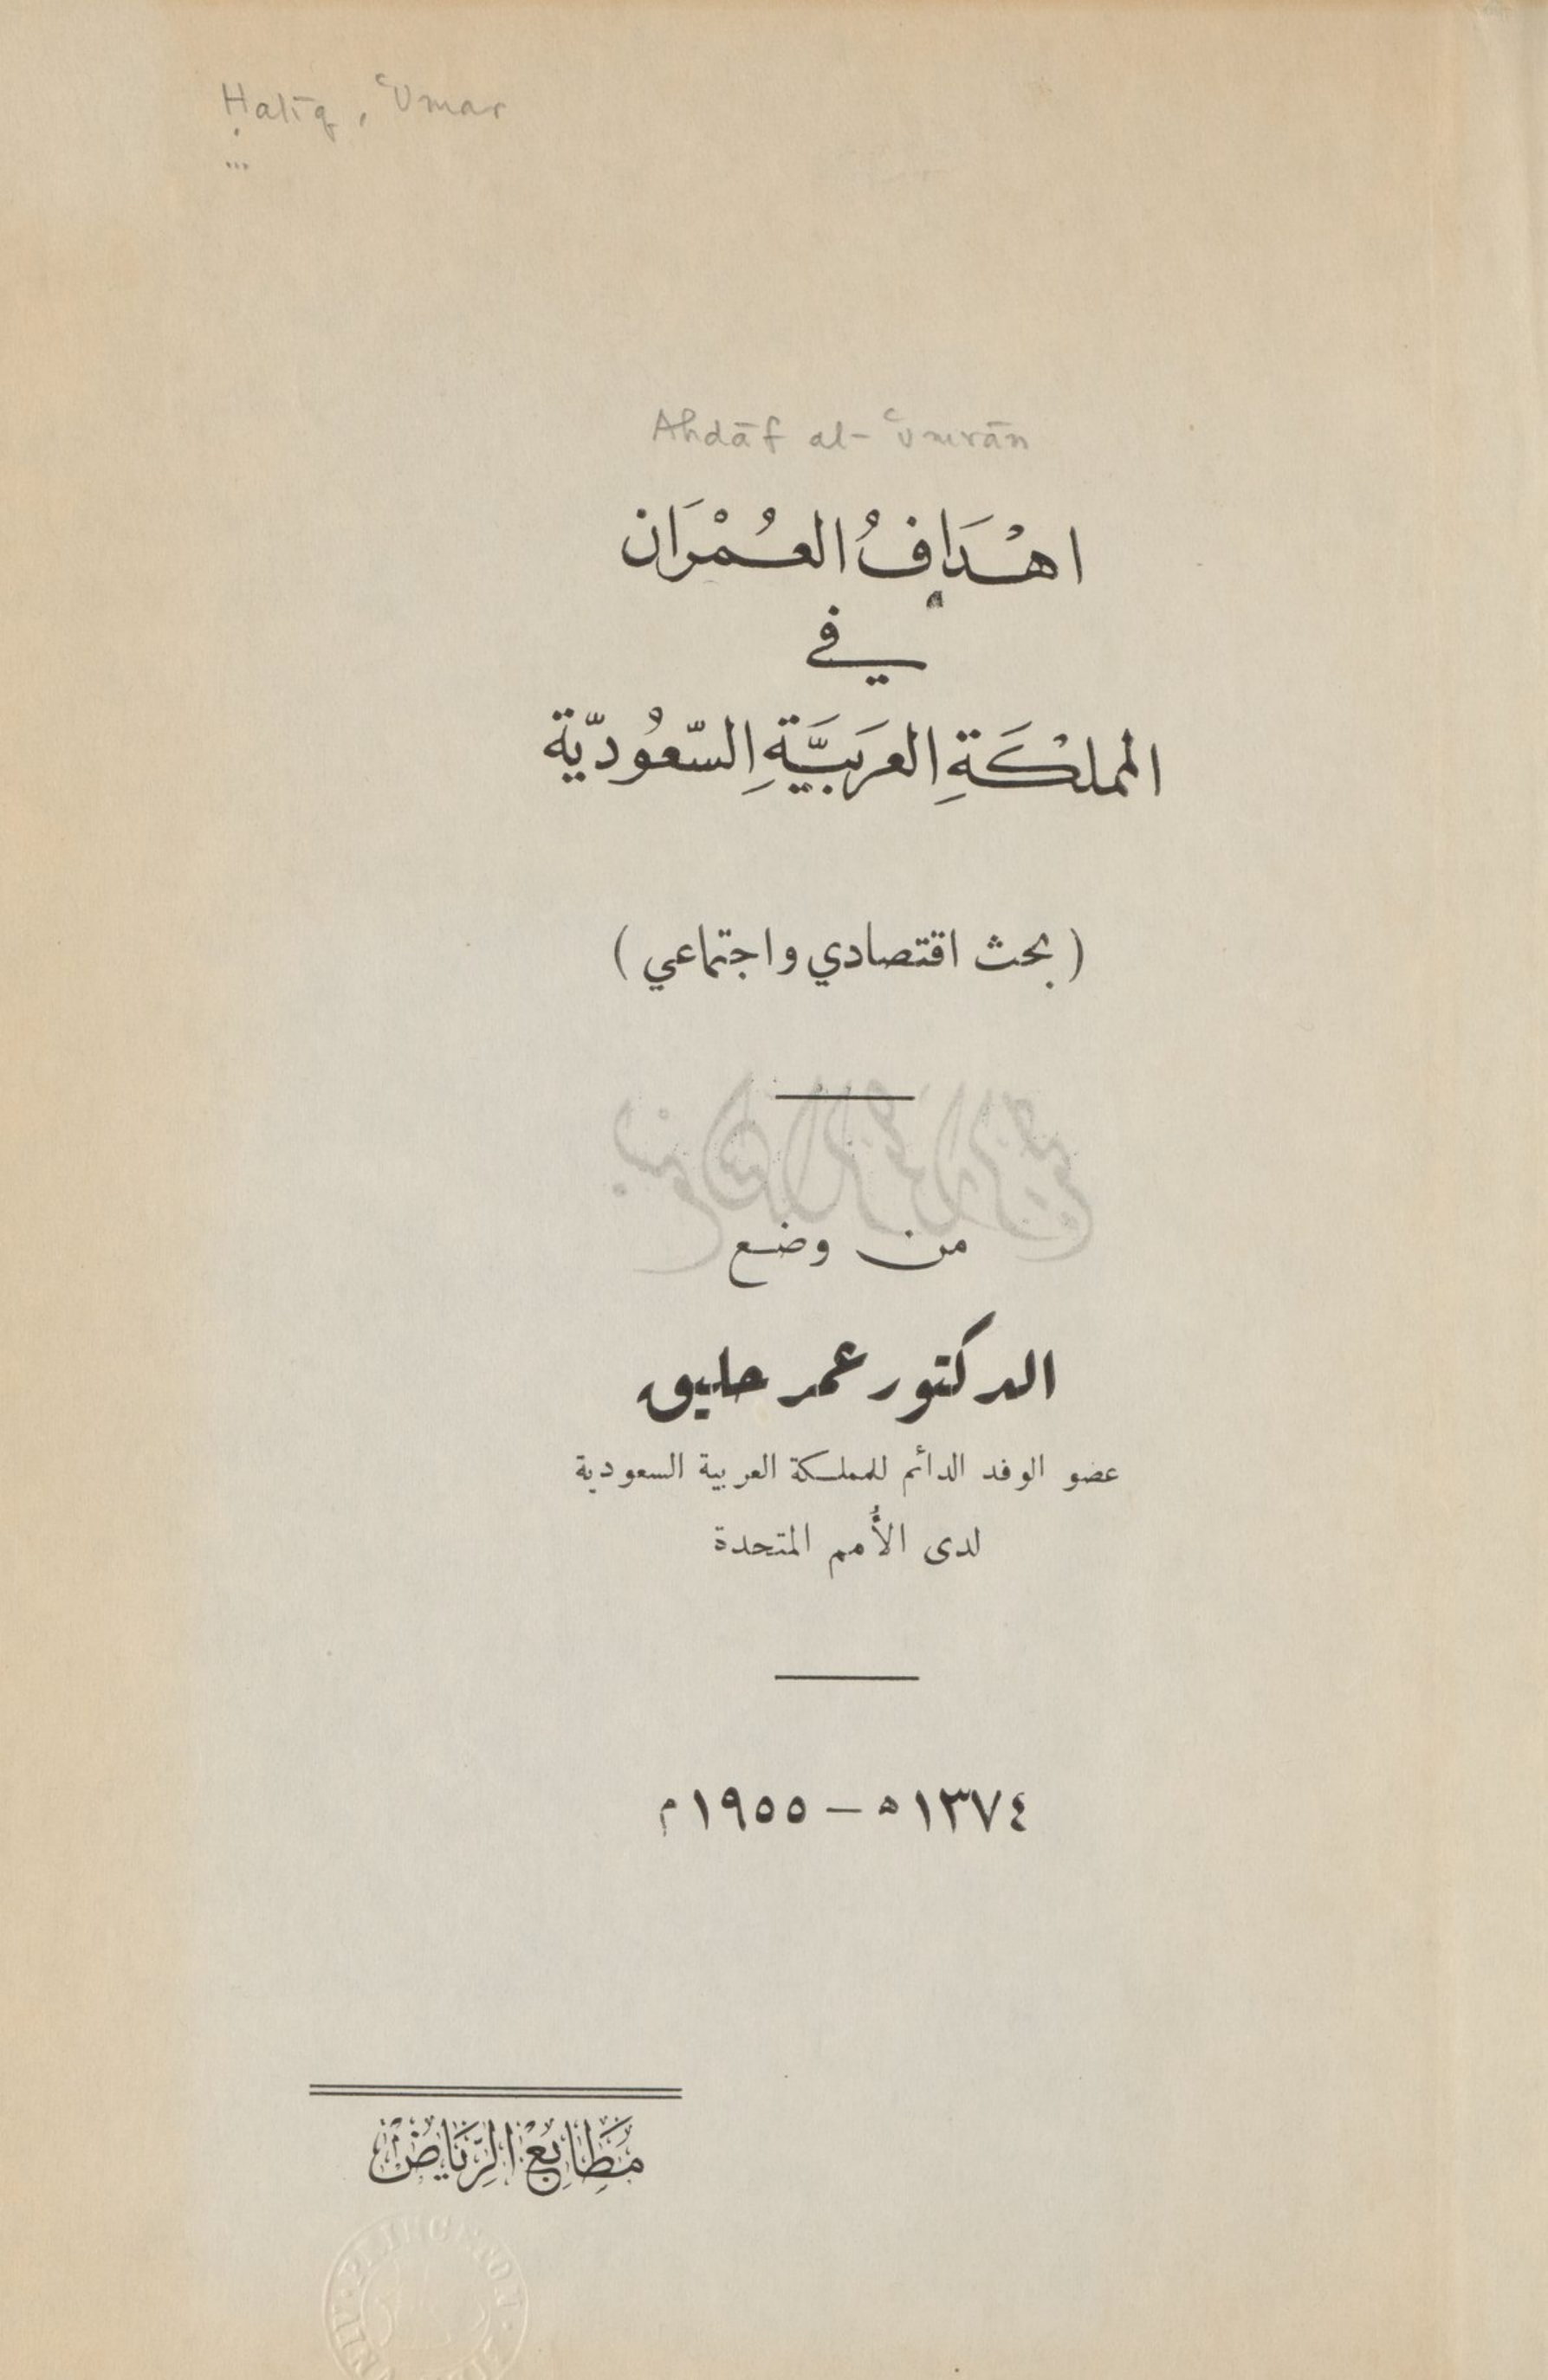 Ḥalīq, ʿUmar
...
Ahdāf al-ʿUmrān
اهْدَافُ العُمْرَان
في
المملْكَةِ العَربَيَّةِ السّعُوديّة
( بحث اقتصادي واجتماعي )
من وضع
الدكتور عمر حليق
عضو الوفد الدائم للمملكة العربية السعودية
لدى الأُمم المتحدة
١٣٧٤ ه – ١٩٥٥ م
مَطَابِعُ الرّيَاضْ
PRINCETON